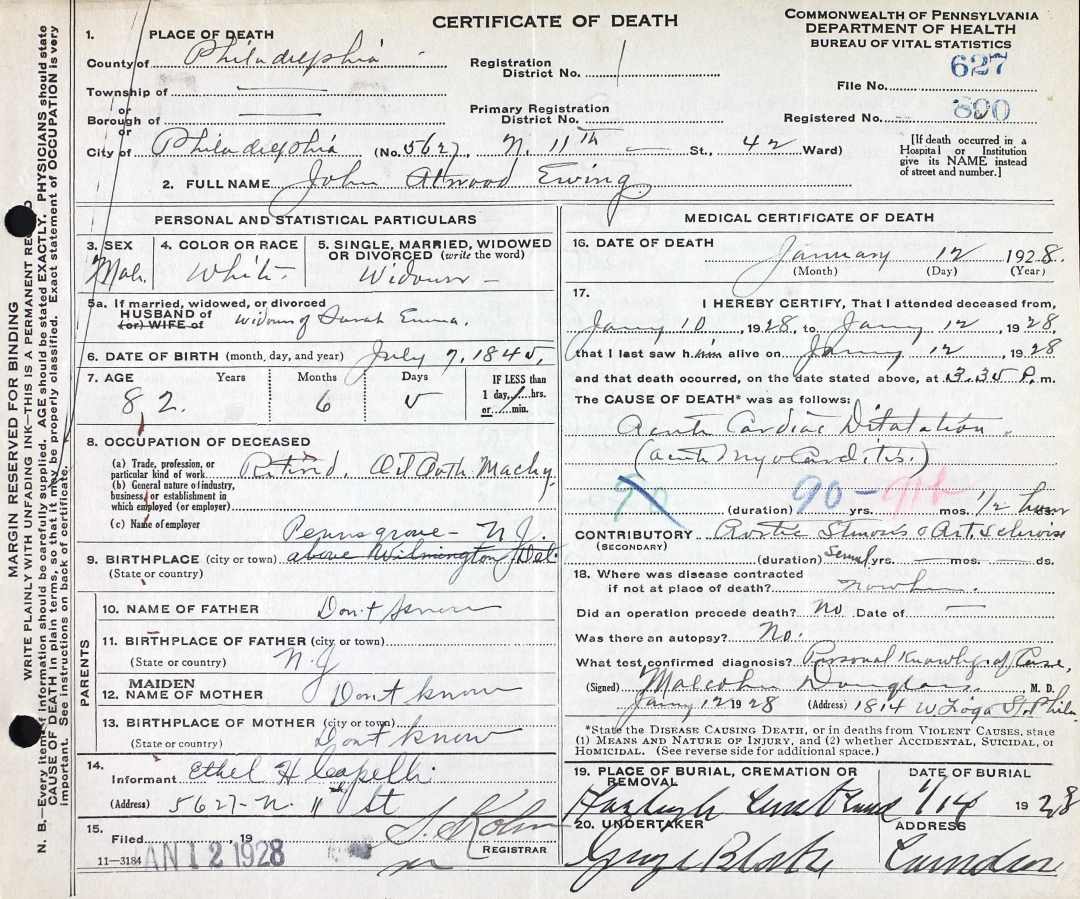 CERTIFICATE OF DEATH
COMMONWEALTH OF PENNSYLVANIA
DEPARTMENT OF HEALTH
BUREAU OF VITAL STATISTICS
1. PLACE OF DEATH
County of Philadelphia
Registration District No. 1
File No. 627
Township of —
or
Borough of —
Primary Registration District No.
Registered No. 890
or
City of Philadelphia (No. 5627, N. 11th — St., 42 Ward)
[If death occurred in a Hospital or Institution give its NAME instead of street and number.]
2. FULL NAME John Atwood Ewing
PERSONAL AND STATISTICAL PARTICULARS
3. SEX
Male
4. COLOR OR RACE
White
5. SINGLE, MARRIED, WIDOWED OR DIVORCED (write the word)
Widower
5a. If married, widowed, or divorced
HUSBAND of
(or) WIFE of
widower of Sarah Emma.
6. DATE OF BIRTH (month, day, and year) July 7, 1845,
7. AGE Years Months Days
82 6 5
IF LESS than
1 day, hrs.
or min.
8. OCCUPATION OF DECEASED
(a) Trade, profession, or particular kind of work Retired, Oil Cloth Machy
(b) General nature of industry, business, or establishment in which employed (or employer)
(c) Name of employer
Pennsgrove - N.J.
9. BIRTHPLACE (city or town) above Wilmington, Del.
(State or country)
PARENTS
10. NAME OF FATHER Don't know
11. BIRTHPLACE OF FATHER (city or town)
(State or country) N.J
12. MAIDEN NAME OF MOTHER Don't know
13. BIRTHPLACE OF MOTHER (city or town)
(State or country) Don't know
14. Informant Ethel H Capelli
(Address) 5627-N. 11th St
15. Filed 19
11-3184 JAN 12 1928
S. Kohn
REGISTRAR
MEDICAL CERTIFICATE OF DEATH
16. DATE OF DEATH January 12 1928.
(Month) (Day) (Year)
17. I HEREBY CERTIFY, That I attended deceased from,
Jany 10, 1928, to Jany 12, 1928,
that I last saw him alive on Jany 12, 1928
and that death occurred, on the date stated above, at 3.35 P. m.
The CAUSE OF DEATH* was as follows:
Acute Cardiac Dilatation.
(Acute Myocarditis.)
90 90-
(duration) yrs. mos. 1/2 hour
CONTRIBUTORY Aortic Stenosis & Art. Sclerosis
(SECONDARY)
(duration) Several yrs. — mos. — ds.
18. Where was disease contracted
if not at place of death?
Did an operation precede death? No Date of —
Was there an autopsy? No.
What test confirmed diagnosis? Personal Knowlg. of Case,
(Signed) Malcolm Douglas, M. D.
Jany 12 1928 (Address) 1814 W. Tioga St. Phila
*State the DISEASE CAUSING DEATH, or in deaths from VIOLENT CAUSES, state
(1) MEANS AND NATURE OF INJURY, and (2) whether ACCIDENTAL, SUICIDAL, or
HOMICIDAL. (See reverse side for additional space.)
19. PLACE OF BURIAL, CREMATION OR REMOVAL
DATE OF BURIAL
1/14 1928
20. UNDERTAKER
ADDRESS
Camden
MARGIN RESERVED FOR BINDING
WRITE PLAINLY WITH UNFADING INK—THIS IS A PERMANENT RECORD
N. B.—Every item of information should be carefully supplied. AGE should be stated EXACTLY. PHYSICIANS should state
CAUSE OF DEATH in plain terms, so that it may be properly classified. Exact statement of OCCUPATION is very
important. See instructions on back of certificate.